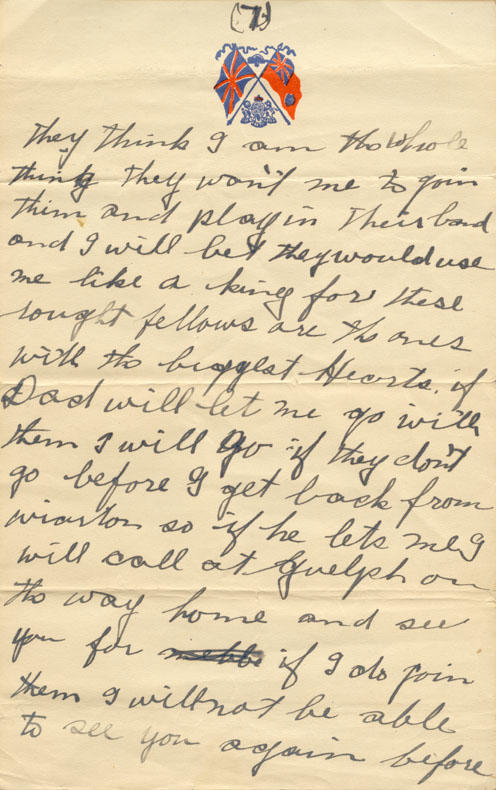 (7)
they think I am tho whole
thing they won't me to join
them and play in their band
and I will bet they would use
me like a king for these
rought fellows are tho ones
with tho biggest Hearts. if
Dad will let me go with
them I will go if they don't
go before I get back from
wiarton so if he lets me I
will call at Guelph on
tho way home and see
you for if I do join
them I will not be able
to see you again before